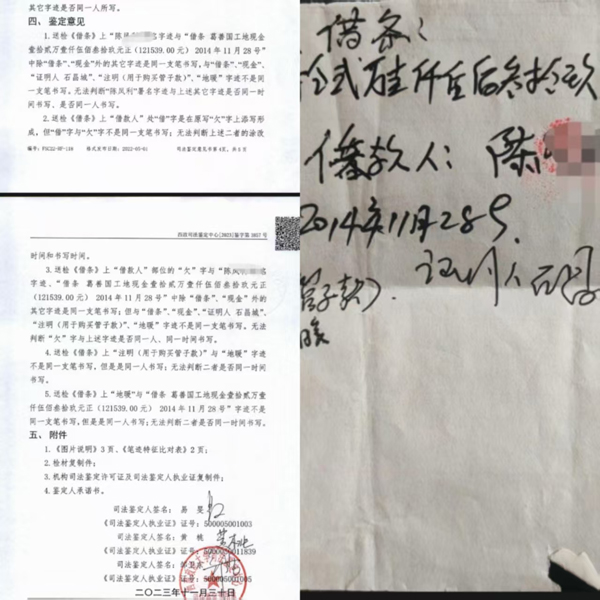 其它字迹是否同一人所写。
四、鉴定意见
1.送检《借条》上"陈 名字迹与"借条 葛善国工地现金
壹拾贰万壹仟伍佰叁拾玖元正（121539.00 元） 2014 年 11 月 28 号"
中除"借条"、"现金"外的其它字迹是同一支笔书写。与"借条"、"现金"、
"证明人 石晶城"、"注明（用于购买管子款）"、"地暖"字迹不是同一
支笔书写；无法判断"陈凤利"署名字迹与上述其它字迹是否同一时
间书写、是否同一人书写。
2.送检《借条》上"借款人"处"借"字是在原写"欠"字上添写形
成，但"借"字与"欠"字不是同一支笔书写；无法判断上述二者的涂改
司法鉴定意见书第4页，共5页
四政司法鉴定中心[2023]鉴字第3857号
时间和书写时间。
3.送检《借条》上"借款人"部位的"欠"字与"陈凤
字迹、"借条 葛善国工地现金壹拾贰万壹仟伍佰叁拾玖元正
（121539.00 元） 2014 年 11 月 28 号"中除"借条"、"现金"外的
其它字迹是同一支笔书写；但与"借条"、"现金"、"证明人 石晶城"、
"注明（用于购买管子款）"、"地暖"字迹不是同一支笔书写。无法
判断"欠"字与上述字迹是否同一人、同一时间书写。
4.送检《借条》上"注明（用于购买管子款）"与"地暖"字迹
不是同一支笔书写，但是是同一人书写；无法判断二者是否同一时间
书写。
5.送检《借条》上"地暖"与"借条 葛善国工地现金壹拾贰万壹
仟伍佰叁拾玖元正（121539.00 元） 2014 年 11 月 28 号"字迹不是
同一支笔书写，但是是同一人书写；无法判断二者是否同一时间书写。
五、附件
1.《图片说明》3 页、《笔迹特征比对表》2 页；
2.检材复制件；
3.机构司法鉴定许可证及司法鉴定人执业证复制件；
4.鉴定人承诺书。
司法鉴定人签名：易 旻
《司法鉴定人执业证》证号：500005001003
司法鉴定人签名：黄 桃
《司法鉴定人执业证》证号：500005011839
司法鉴定人签名：
《司法鉴定人执业证》证号：500005001005
二〇二三年十一月三十日
借条：
拾贰万壹仟伍佰叁拾玖
借款人：陈
2014年11月28号
证明人 石晶
管子款）.
暖